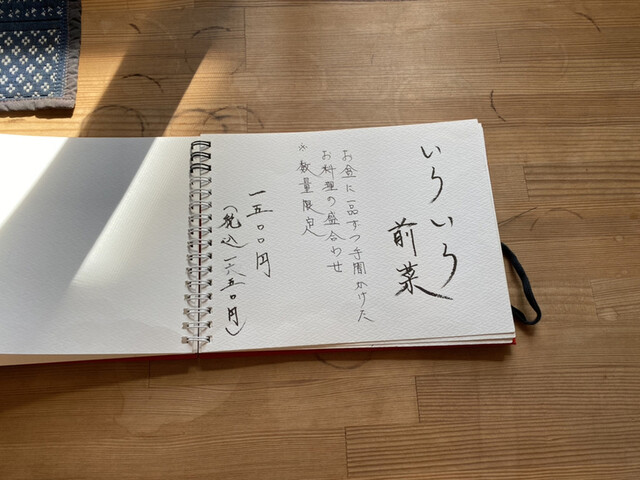 いろいろ
前菜
お盆に一品ずつ手間かけた
お料理の盛合わせ
※数量限定
一五〇〇円
(税込一六五〇円)